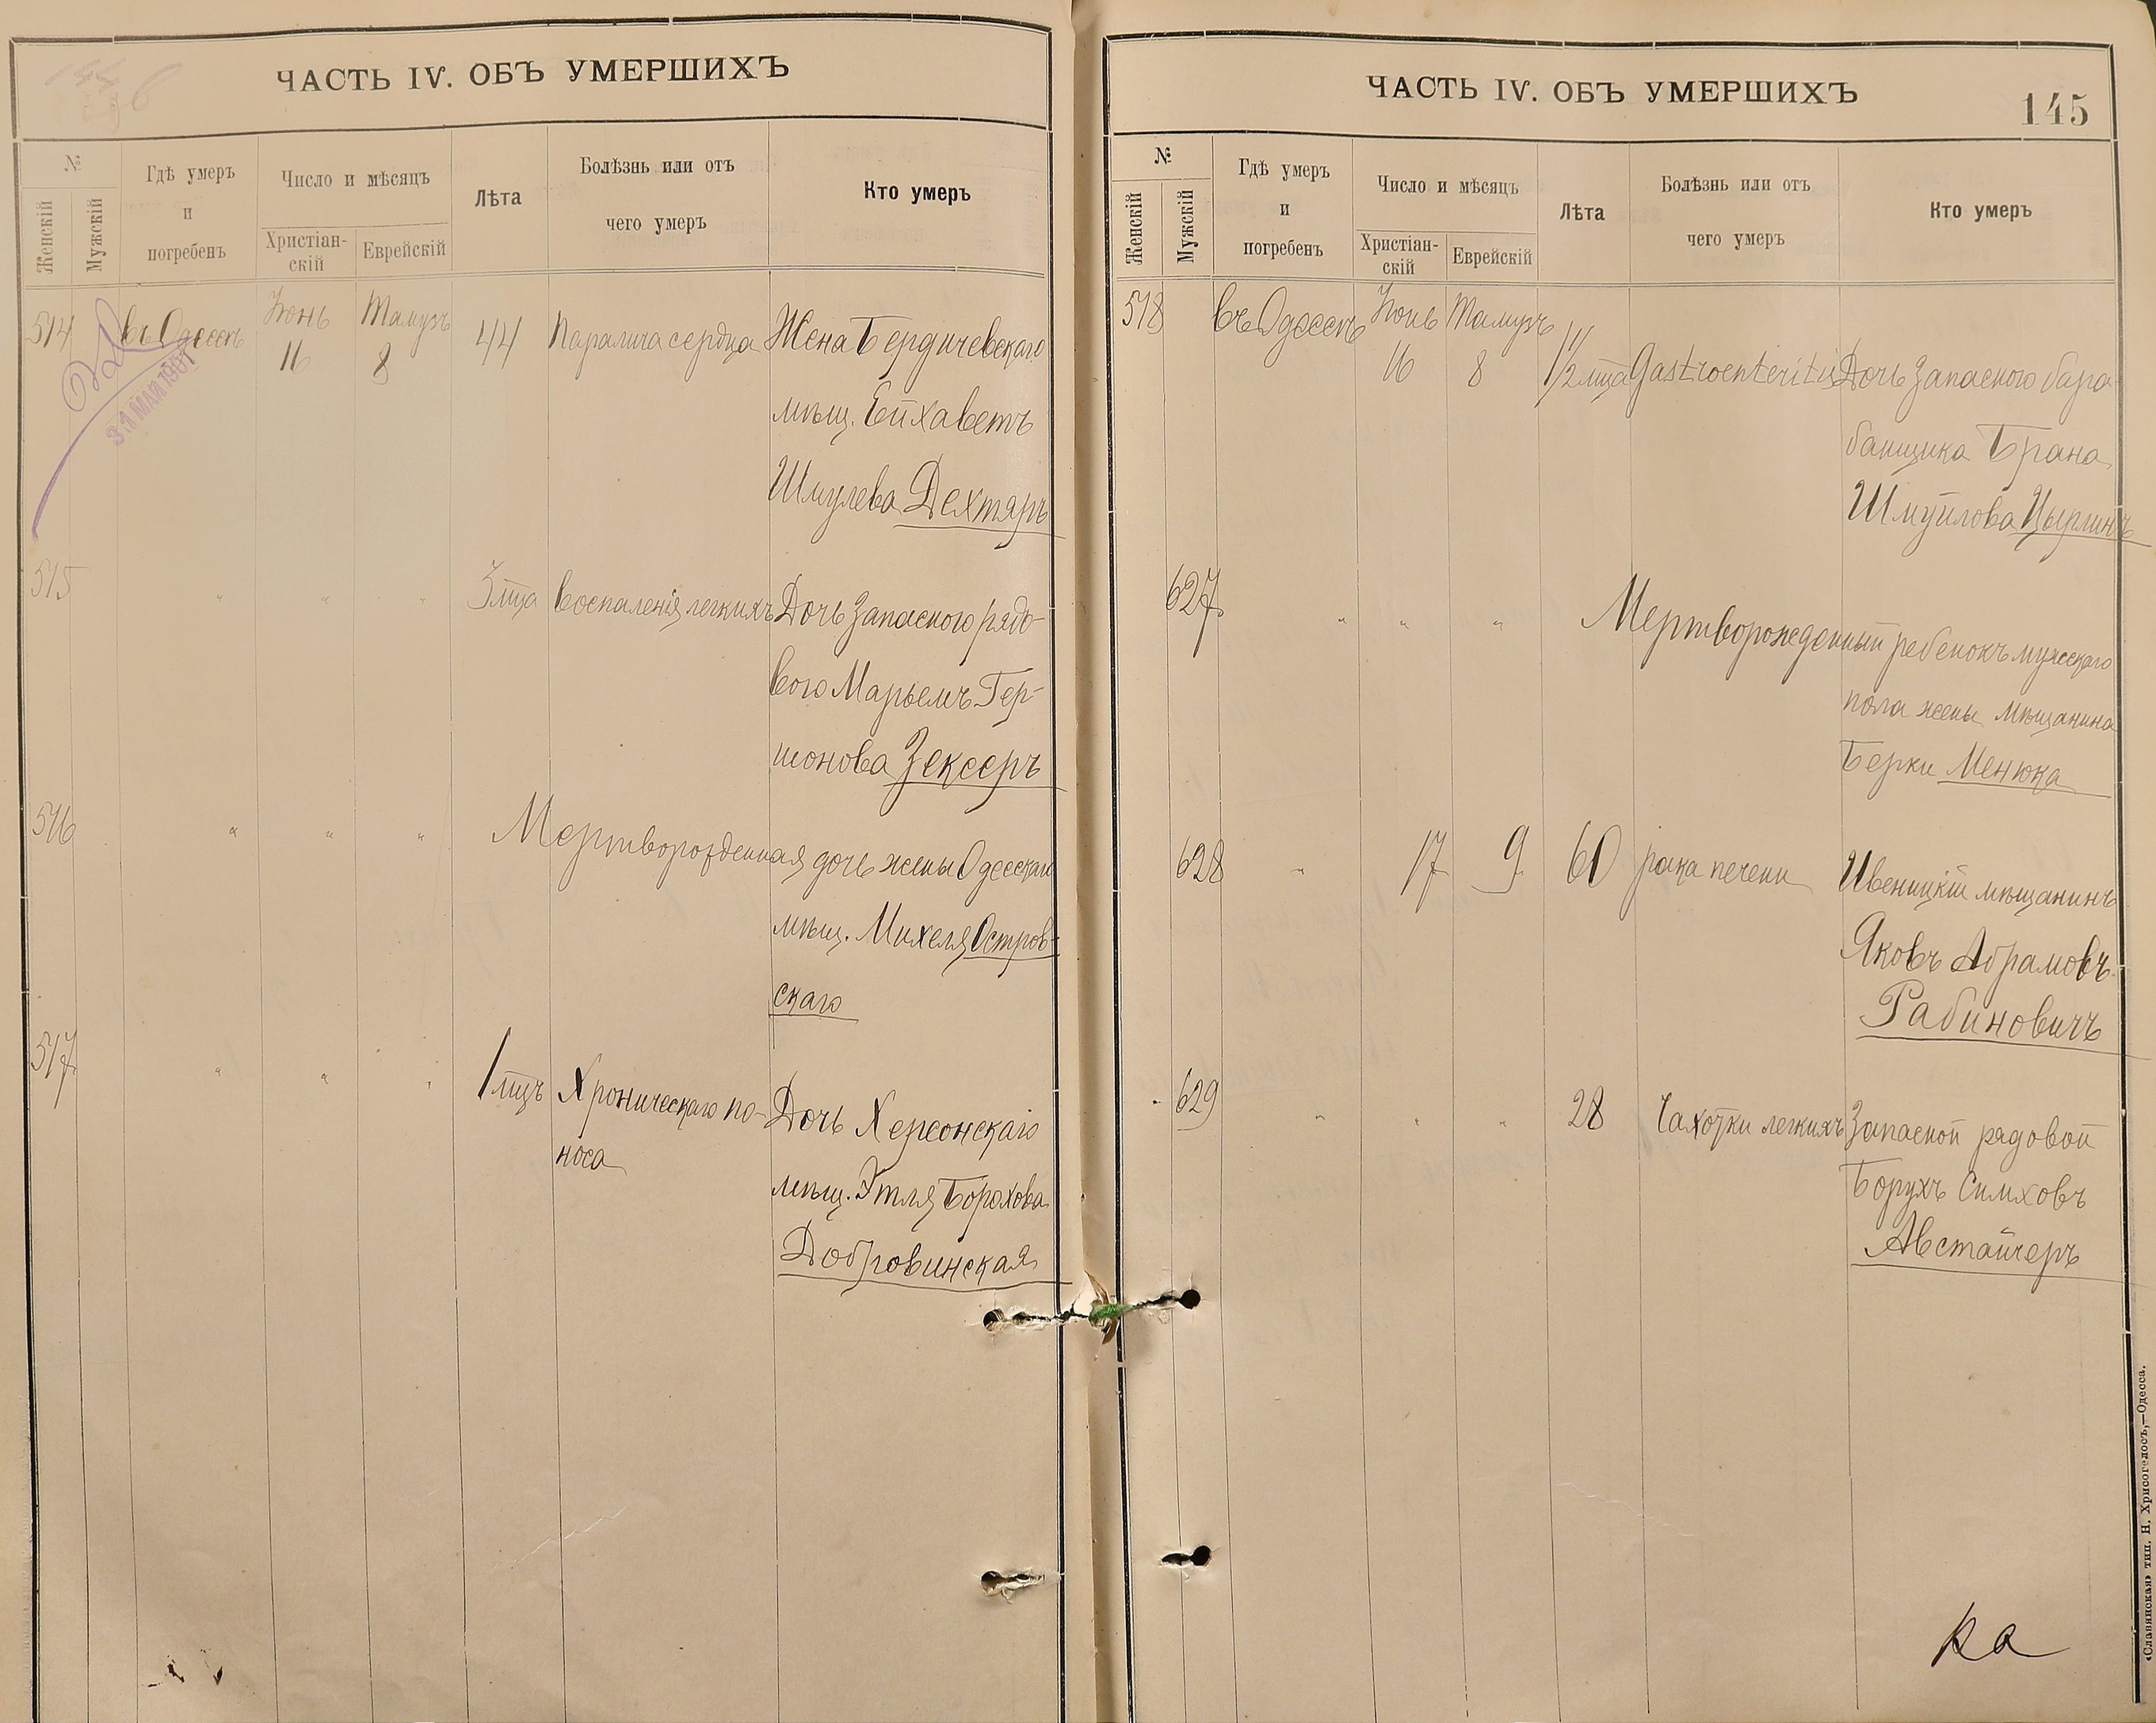 ЧАСТЬ IV. ОБЪ УМЕРШИХЪ
№
Женскій
Мужскій
Гдѣ умеръ
и
погребенъ
Число и мѣсяцъ
Христіан-
скій
Еврейскій
Лѣта
Болѣзнь или отъ
чего умеръ
Кто умеръ
31 МАЯ 1901
514 въ Одессѣ Іюнь Тамузъ
16 8 44 Паралича сердца Жена Бердичевскаго
мѣщ. Ейхаветъ
Шмулева Дехтяръ
515 " " " 3 мца Воспаленія легкихъ Дочь Запасного рядо-
вого Марьемъ Гер-
шонова Зексеръ
516 " " " Мертворожденная дочь жены Одесскаго
мѣщ. Михеля Остров-
скаго
517 " " " 1 мцъ Хроническаго по- Дочь Херсонскаго
носа
мѣщ. Этля Борохова
Добровинская
ЧАСТЬ IV. ОБЪ УМЕРШИХЪ
145
№
Женскій
Мужскій
Гдѣ умеръ
и
погребенъ
Число и мѣсяцъ
Христіан-
скій
Еврейскій
Лѣта
Болѣзнь или отъ
чего умеръ
Кто умеръ
518 въ Одессѣ Іюнь Тамузъ
16 8 1 1/2 мца Gastroenteritis Дочь Запасного бара-
банщика Брана
Шмуйлова Цырлинъ
627 " " " Мертворожденный ребенокъ мужескаго
пола жены мѣщанина
Берки Менюка
628 " 17 9 60 рака печени Ивеницкій мѣщанинъ
Яковъ Абрамовъ
Рабиновичъ
629 " " " 28 Чахотки легкихъ Запасной рядовой
Борухъ Симховъ
Австайчеръ
ка
«Славянская» тип. Н. Хрисогелосъ,—Одесса.